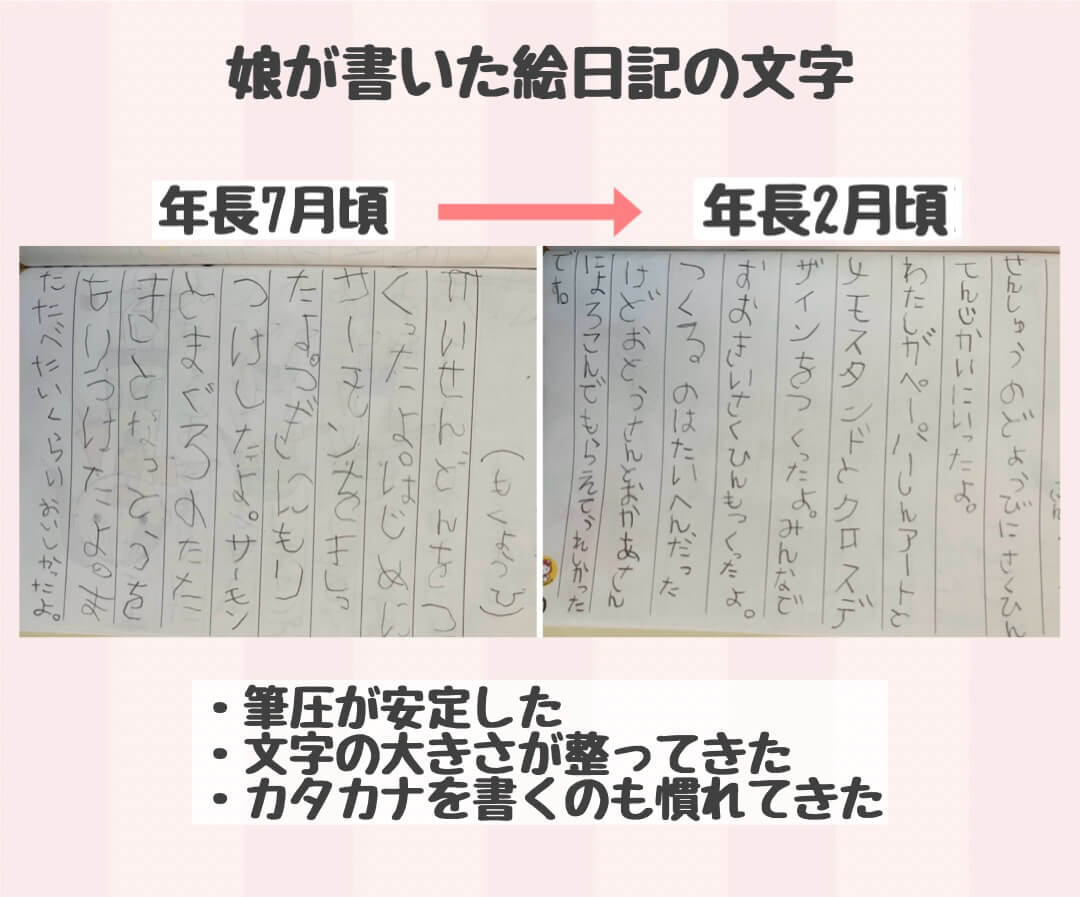 娘が書いた絵日記の文字
年長7月頃
年長2月頃
(もくようび)
かいせんどんをつ
くったよ。はじめに
サーモンをきっ
たよ。つぎにもり
つけしたよ。サーモン
とまぐろのたた
きとなっとうを
もりつけたよ。ま
たたべたいくらいおいしかったよ。
せんしゅうのどようびにさくひん
てんじかいにいったよ。
わたしがペーパーしんアートと
メモスタンドとクロスデ
ザインをつくったよ。みんなで
おおきいさくひんもつくったよ。
つくるのはたいへんだった
けどおとうさんとおかあさん
によろこんでもらえてうれしかった
です。
・筆圧が安定した
・文字の大きさが整ってきた
・カタカナを書くのも慣れてきた